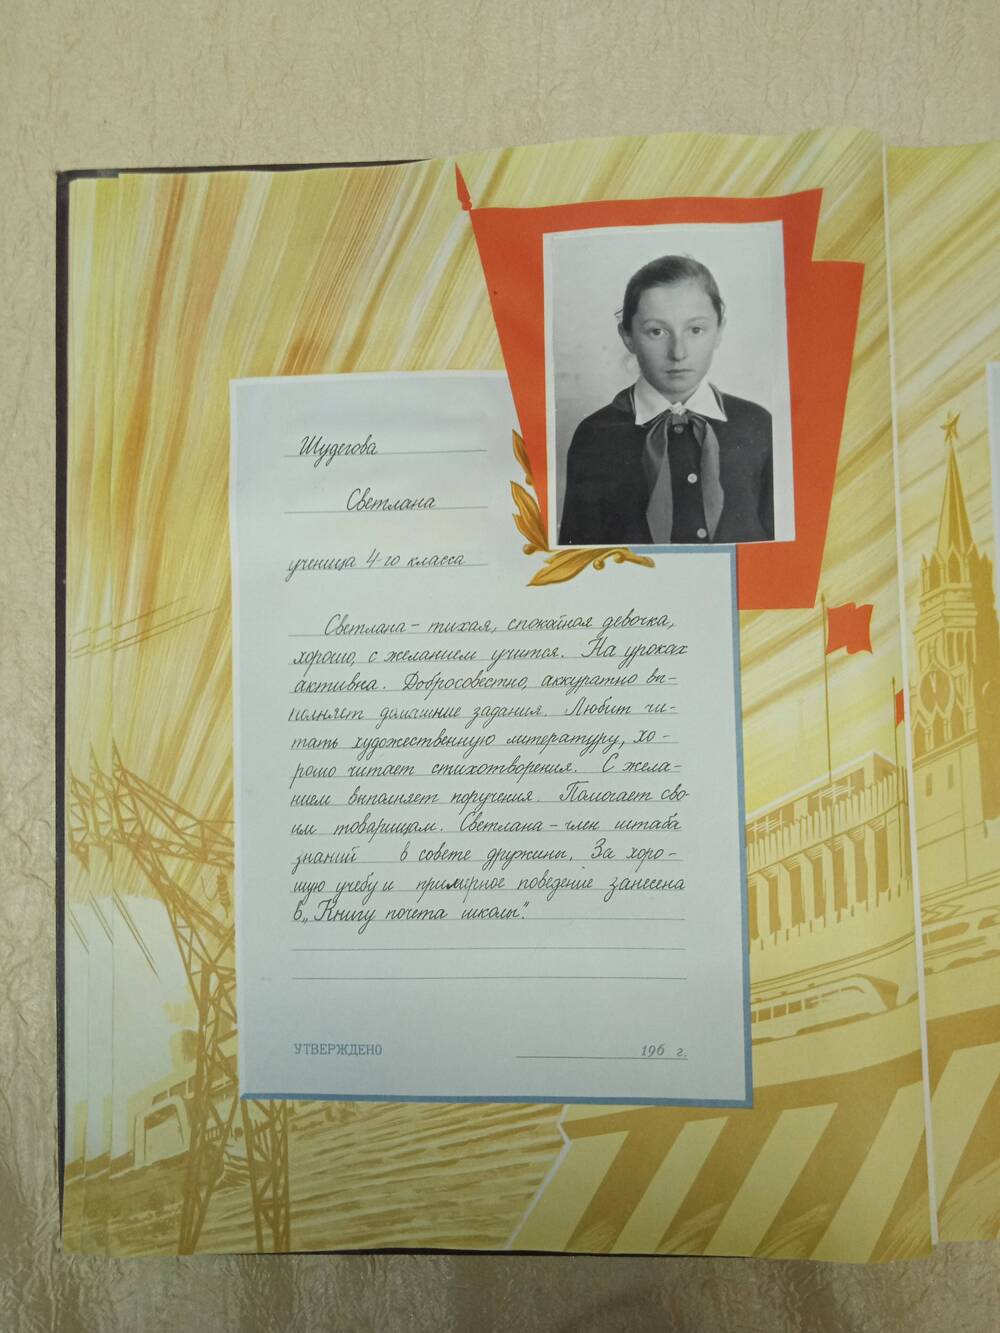 Шудегова
Светлана
ученица 4-го класса
Светлана - тихая, спокойная девочка,
хорошо, с желанием учится. На уроках
активна. Добросовестно, аккуратно вы-
полняет домашние задания. Любит чи-
тать художественную литературу, хо-
рошо читает стихотворения. С жела-
нием выполняет поручения. Помогает сво-
им товарищам. Светлана - член штаба
знаний в совете дружины. За хоро-
шую учебу и примерное поведение занесена
в „Книгу почета школы".
УТВЕРЖДЕНО 196 г.